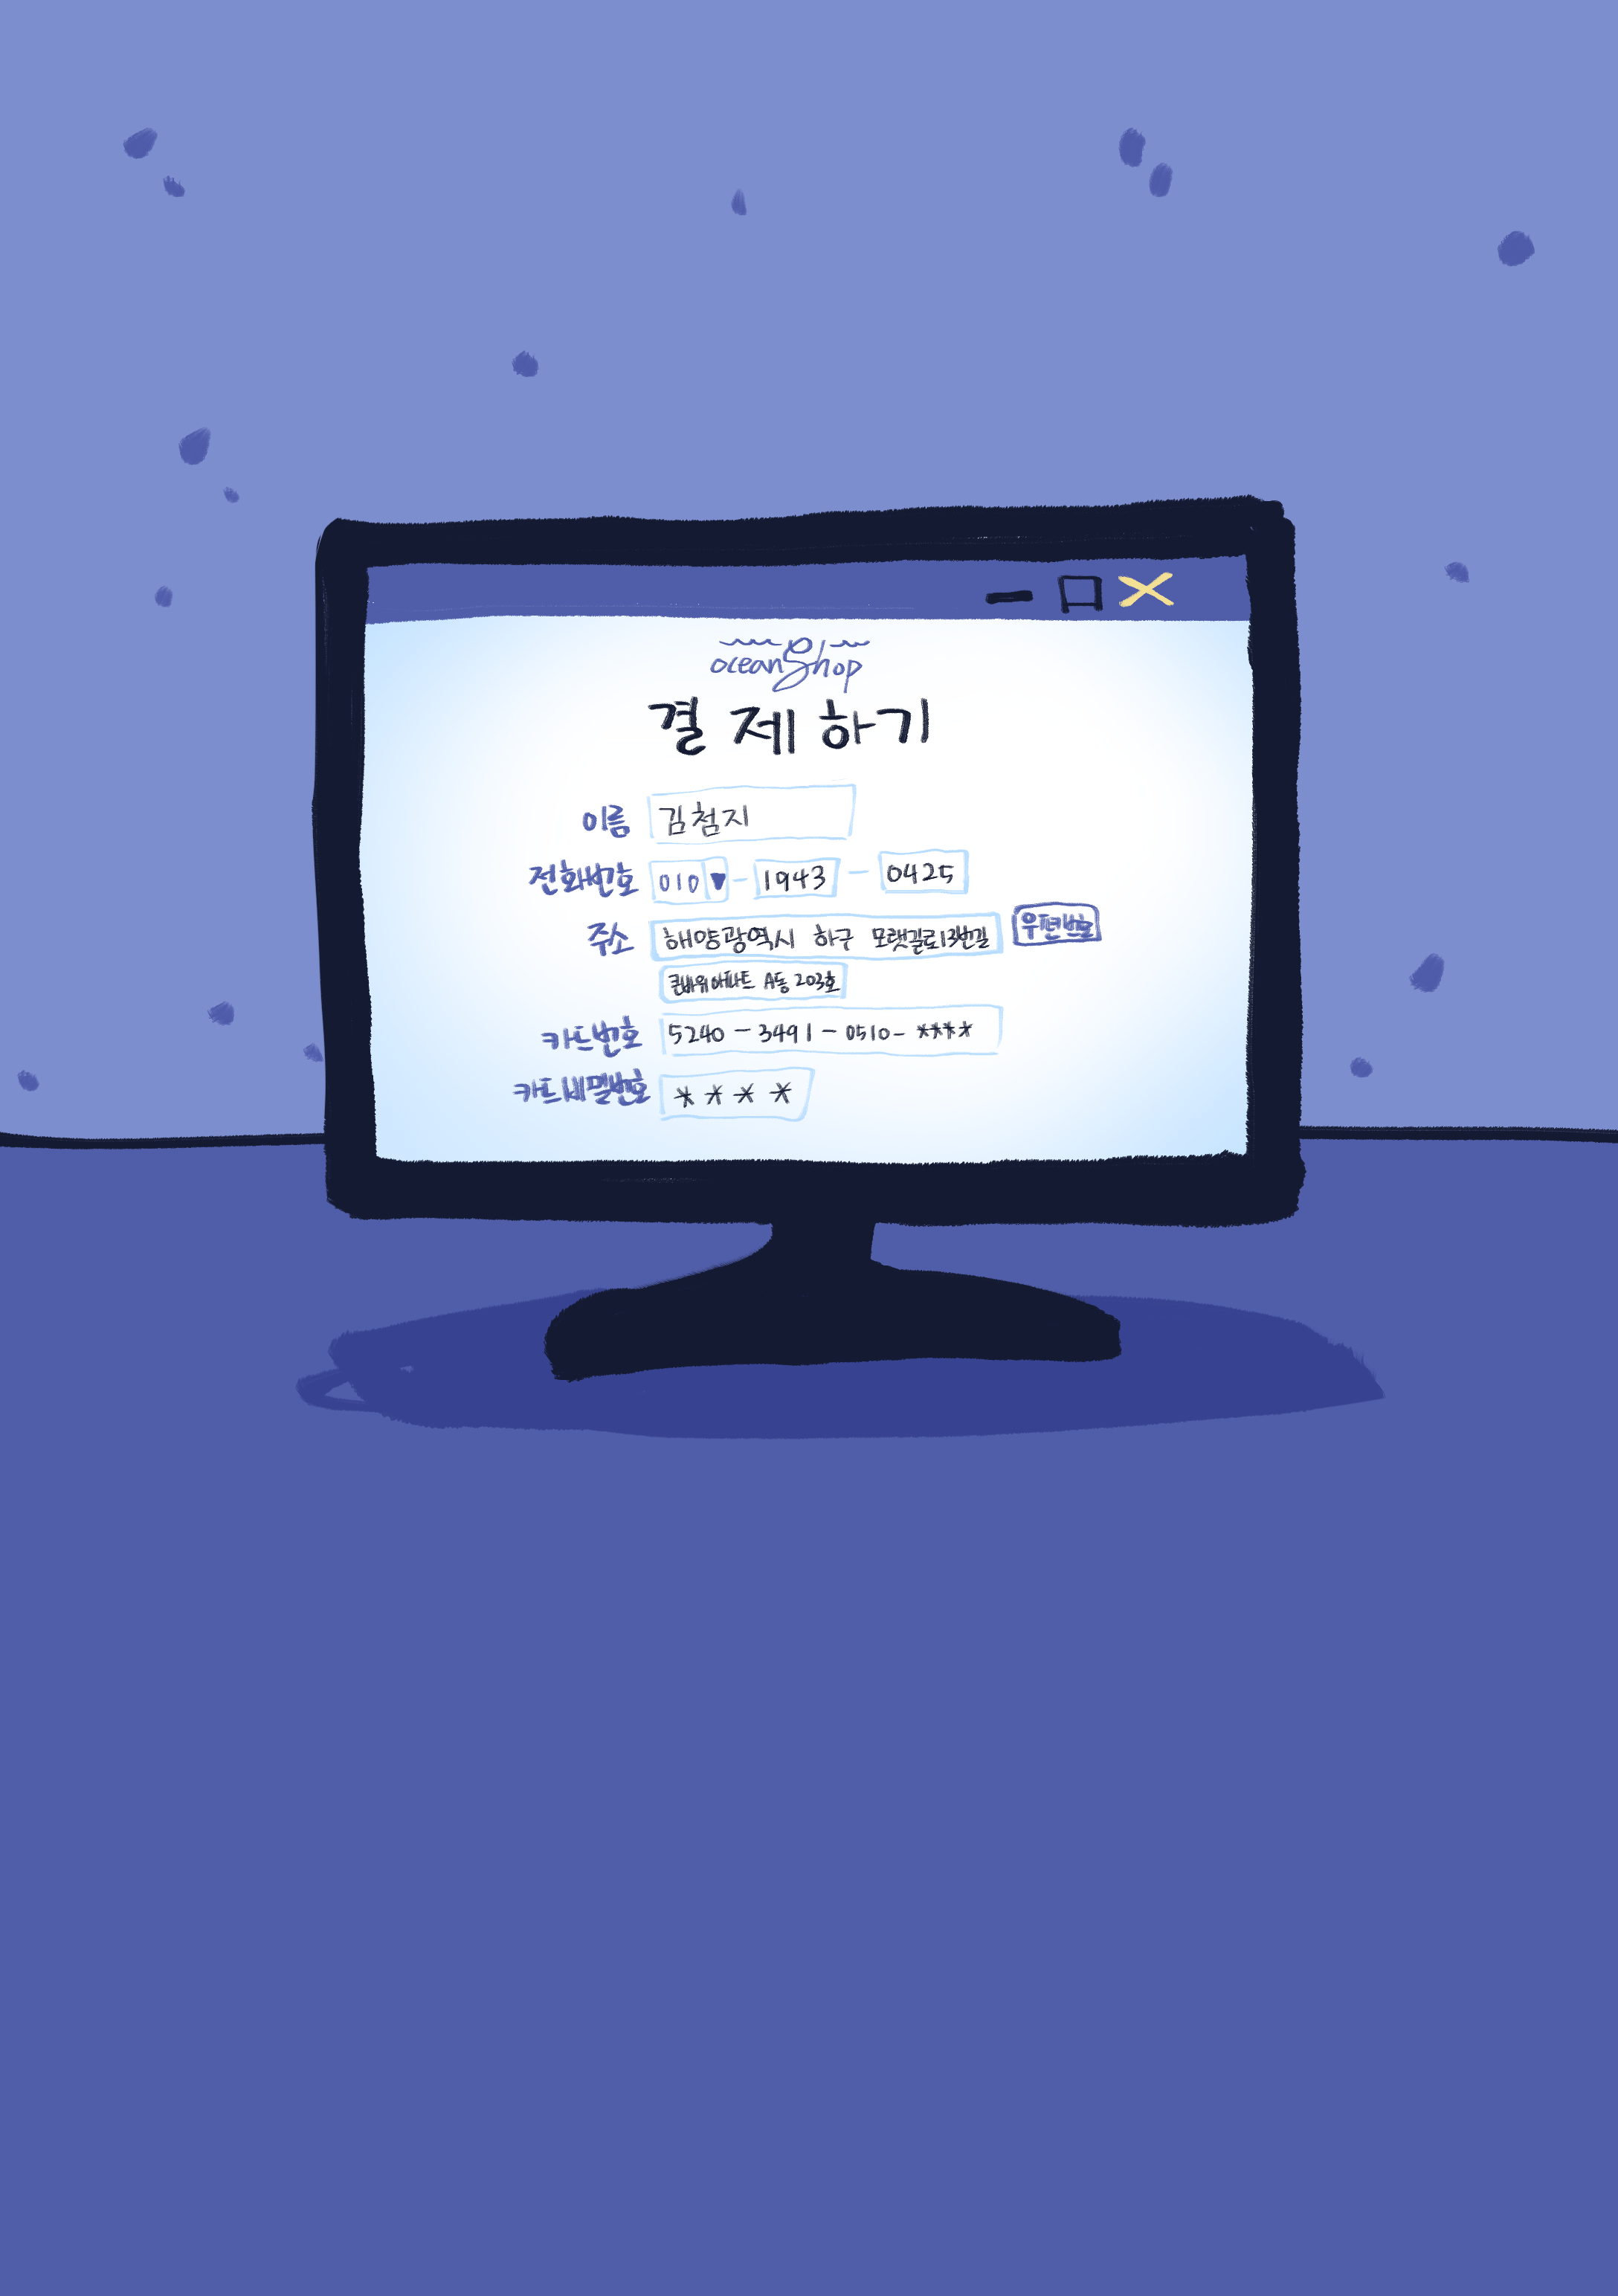 oceanShop
결제하기
이름 김첨지
전화번호 010 ▼ - 1943 - 0425
주소 해양광역시 하구 모랫길로13번길 우편번호
큰바위아파트 A동 203호
카드번호 5240 - 3491 - 0510 - ****
카드비밀번호 ****